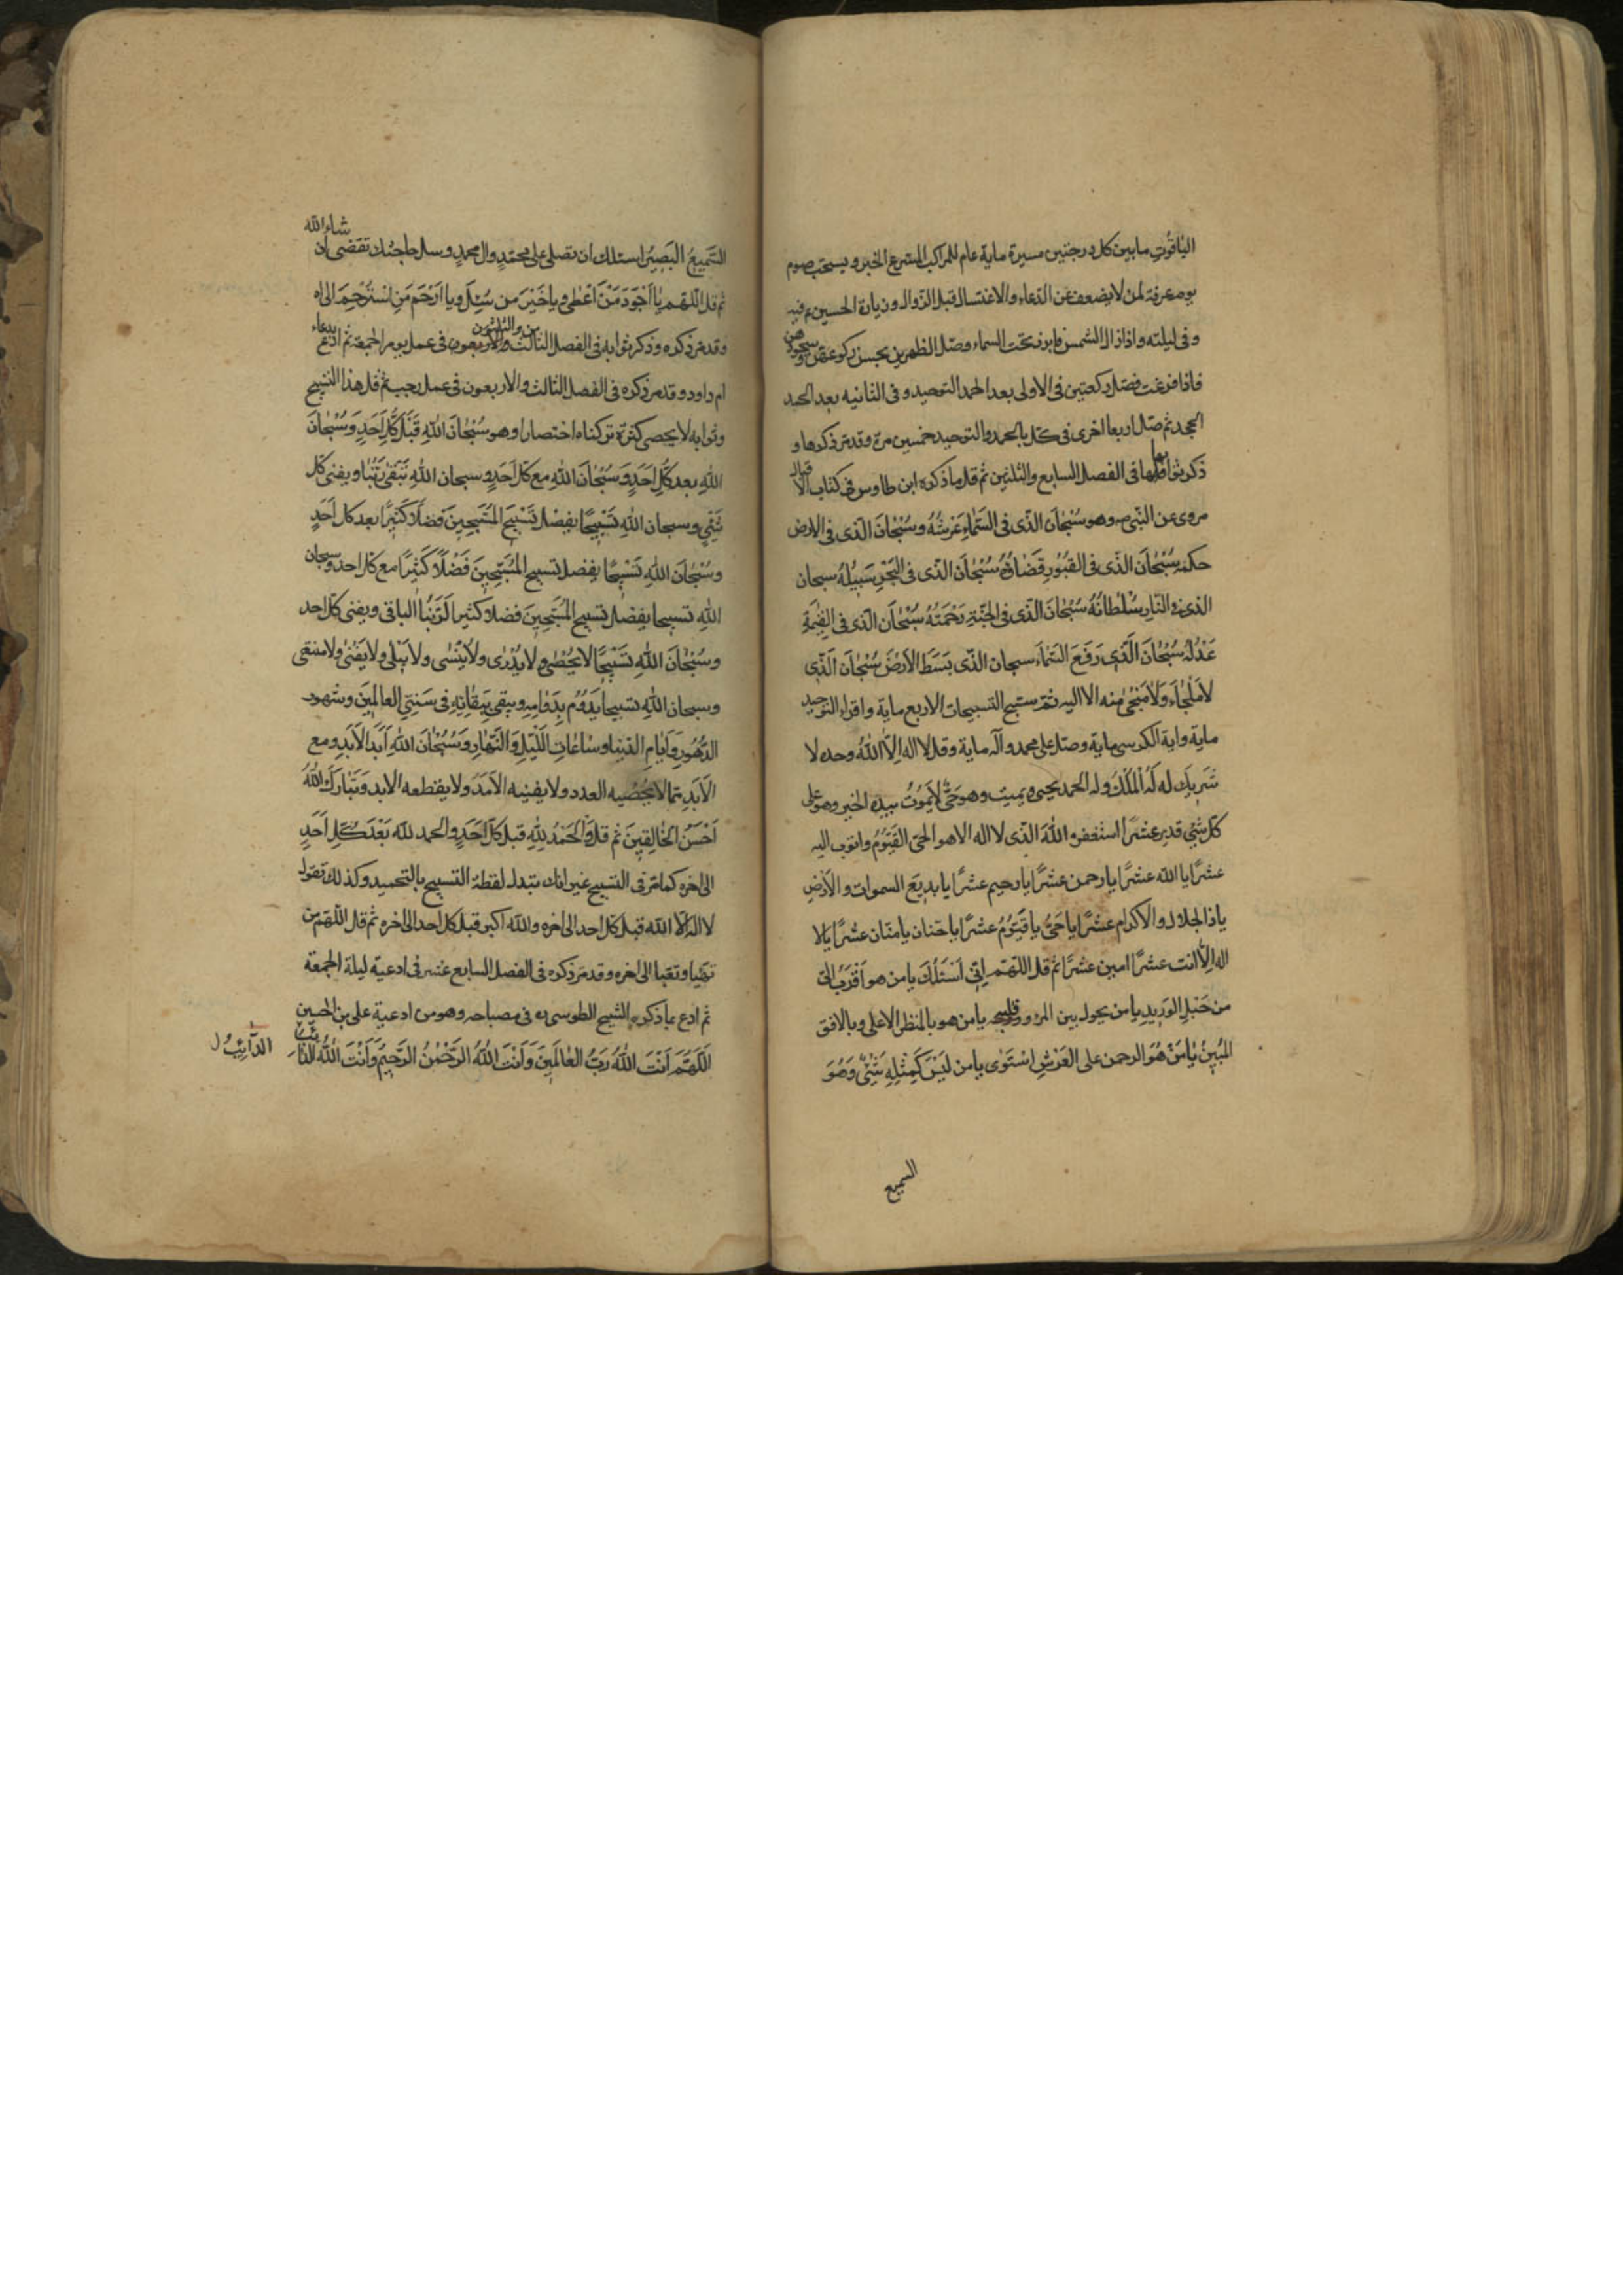 الياقوت ما بين كل درجتين مسيرة ماية عام للراكب المسرع الخبر ويستحب صوم
يوم عرفة لمن لا يضعف عن الدعاء والاغتسال قبل الزوال وزيارة الحسين ع فيه
وفي ليلته واذا زالت الشمس فابرز تحت السماء وصل الظهرين بحسن ركوعهن وسجودهن
فاذا فرغت فصل ركعتين في الاولى بعد الحمد التوحيد وفي الثانيه بعد الحمد
الجحد ثم صل اربعا اخرى في كل بالحمد والتوحيد خمسين مرة وقد مر ذكرها و
ذكر ثوابها في الفصل السابع والثلثين ثم قل ما ذكره ابن طاوس في كتاب الاقبال
مروى عن النبي ص وهو سُبْحانَ الّذى في السَّماءِ عَرْشُهُ وسُبْحانَ الّذى في الارض
حكمه سُبْحانَ الّذى في القُبُورِ قَضاؤُهُ سُبْحانَ الّذى في البَحْرِ سَبيلُهُ سبحان
الذى في النّارِ سُلْطانُهُ سُبْحانَ الّذى في الجَنّةِ رَحْمَتُهُ سُبْحانَ الّذى في القِيٰمَةِ
عَدْلُهُ سُبْحانَ الَّذى رَفَعَ السَّماءَ سبحان الّذى بَسَطَ الاَرْضَ سُبْحانَ الَّذى
لا مَلْجَاءَ وَلا مَنْجٰى منه الا اليه ثم سبح التسبيحات الاربع ماية واقراء التوحيد
ماية واية الكرسى ماية وصل على محمد وآله ماية وقل لا اله اِلّا اللهُ وحده لا
شَريكَ له لَهُ الْمُلْكُ وله الحمد يحيى ويميت وهو حَىٌّ لا يَمُوتُ بيده الخير وهو على
كل شئ قدير عشرًا استغفر اللهَ الّذى لا اله الا هو الحىّ القَيُّومُ واتوب اليه
عشرًا يا الله عشرًا يا رحمن عشرًا يا رحيم عشرًا يا بديعَ السموات والاَرْضِ
يا ذا الجلال والاكرام عشرًا يا حَىُّ يا قَيُّومُ عشرًا يا حنان يا منّان عشرًا يا لا
اله اِلّا انت عشرًا امين عشرًا ثم قل اللّهم اِنّى اَسْئَلُكَ يا من هو اَقْرَبُ اِلىّ
من حَبْلِ الوَريدِ يا من يحول بين المرء وقلبه يا من هو بالمنظر الاعلى وبالافق
المُبينِ يا مَنْ هُوَ الرحمن على العَرْشِ اسْتَوٰى يا من لَيْسَ كَمِثْلِهِ شَئٌ وَهُوَ
السميع
السَّميعُ البَصيرُ اسئلك ان تصلى على محمّدٍ وال محمدٍ وسل حاجتك تقضى ان شاء الله
ثم قل اللّهم يا اَجْوَدَ مَنْ اَعْطى ويا خَيْرَ من سُئِلَ ويا اَرْحَمَ مَنِ اسْتُرْحِمَ الى اه
وقد مر ذكره وذكر ثوابه في الفصل الثالث والاربعون في عمل يوم الجمعة ثم ادع بدعاء
ام داود وقد مر ذكره في الفصل الثالث والاربعون في عمل رجب ثم قل هذا التسبيح
وثوابه لا يحصى كثرة تركناه اختصارا وهو سُبْحانَ اللهِ قَبْلَ كُلِّ اَحَدٍ وَسُبْحانَ
اللهِ بعد كُلِّ اَحَدٍ وَسُبْحانَ اللهِ مع كل اَحَدٍ وسبحان اللهِ يَبْقى رَبُّنا ويفنى كل
شَئٍ وسبحان اللهِ تَسْبيحًا يفضل تَسْبيحَ المُسَبِّحينَ فَضلًا كَثيرًا بعد كل اَحَدٍ
وسُبْحانَ اللهِ تَسْبيحًا يفضل تسبيح المُسَبِّحينَ فَضْلًا كَثيرًا مع كل احد وسبحان
اللهِ تسبيحا يفضل تسبيح المُسَبِّحينَ فضلا كثيرا لَرَبُّنا الباقى ويفنى كل احد
وسُبْحانَ اللهِ تَسْبيحًا لا يُحْصٰى ولا يُدْرى ولا يُنْسٰى ولا يَبْلى ولا يَفْنى ولا منتهى
وسبحان اللهِ تسبيحا يَدُومُ بِدَوامِهِ ويبقى بِبَقائِهِ في سَنِىِ العالَمينَ وشهور
الدُّهُورِ وَاَيّامِ الدنيا وساعاتِ اللَّيْلِ وَالنَّهارِ وَسُبْحانَ اللهِ اَبَدَ الاَبَدِ ومع
الاَبَدِ مما لا يُحْصيه العدد ولا يفنيه الاَمَدُ ولا يقطعه الابد وَتَبارَكَ اللهُ
اَحْسَنُ الخالِقينَ ثم قل وَالحَمْدُ لِلّهِ قبل كل اَحَدٍ والحمد لله بَعْدَ كُلِّ اَحَدٍ
الى اخره كما مرّ في التسبيح غير انك تبدل لفظة التسبيح بالتحميد وكذلك تقول
لا اله الا الله قبل كل احد الى اخره والله اكبر قبل كل احد الى اخره ثم قال اللّهم من
تهيّا وتعبّا الى اخره وقد مر ذكره في الفصل السابع عشر في ادعية ليلة الجمعة
ثم ادع بما ذكره الشيخ الطوسى ره في مصباحه وهو من ادعية على بن الحسين
اَللّهُمَّ اَنْتَ اللهُ رَبُّ العالَمينَ وَاَنْتَ اللهُ الرَّحْمٰنُ الرَّحيمُ وَاَنْتَ اللهُ
الدّائِبُ ل